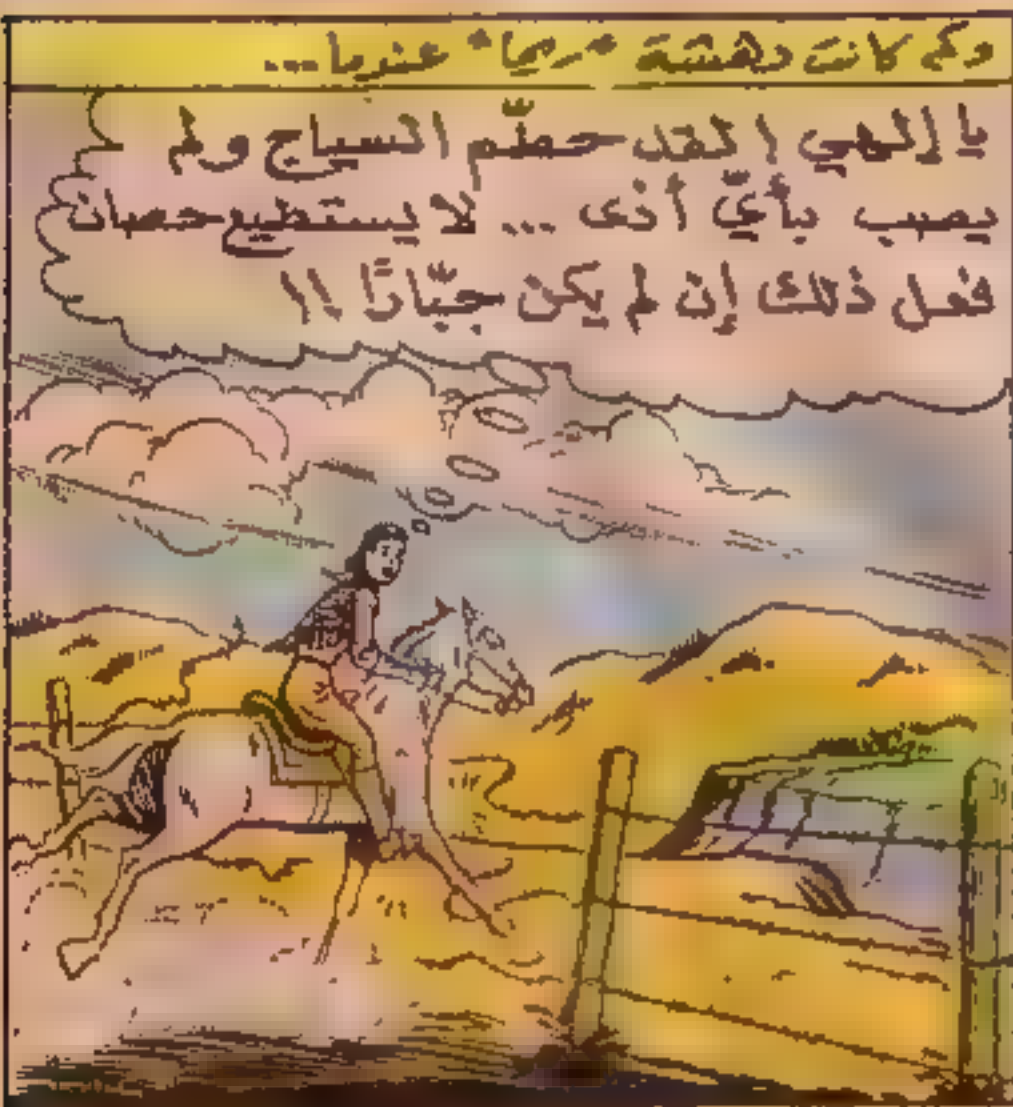 وكم كانت دهشة عندما...
يا إلهي ! لقد حطّم السياج ولم
يصب بأيّ أذى ... لا يستطيع حصان
فعل ذلك إن لم يكن جبّارًا !!